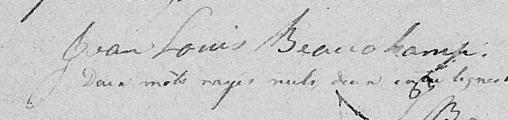 Jean Louis Beauchamp.
Deux mots rayés nuls, deux entre lignes